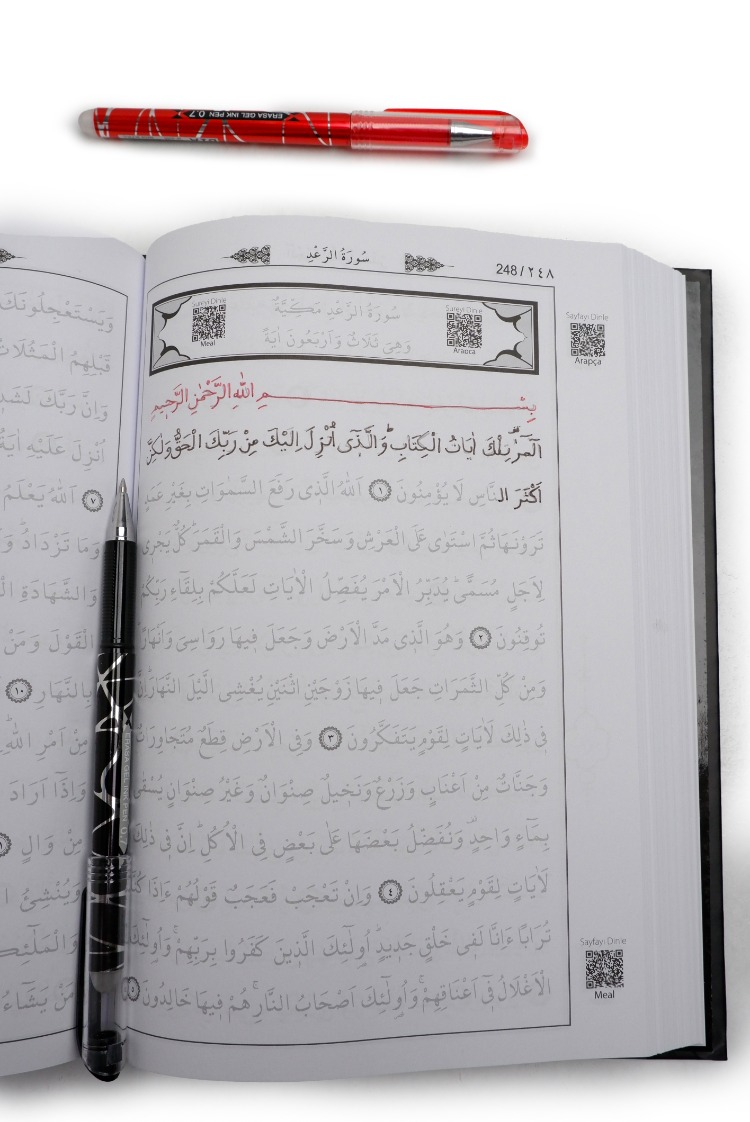 ERASA GEL INK PEN 0.7
سُورَةُ الرَّعْدِ
248/٢٤٨
Sureyi Dinle
Meal
سُورَةُ الرَّعْدِ مَكِّيَّةٌ
وَهِيَ ثَلَاثٌ وَاَرْبَعُونَ اٰيَةً
Sureyi Dinle
Arapça
Sayfayı Dinle
Arapça
بِسْمِ اللّٰهِ الرَّحْمٰنِ الرَّحِيمِ
الٓمٓرٰ تِلْكَ اٰيَاتُ الْكِتَابِۜ وَالَّذ۪ٓي اُنْزِلَ اِلَيْكَ مِنْ رَبِّكَ الْحَقُّ وَلٰكِنَّ
اَكْثَرَ النَّاسِ لَا يُؤْمِنُونَ ١ اَللّٰهُ الَّذ۪ي رَفَعَ السَّمٰوَاتِ بِغَيْرِ عَمَدٍ
تَرَوْنَهَا ثُمَّ اسْتَوٰى عَلَى الْعَرْشِ وَسَخَّرَ الشَّمْسَ وَالْقَمَرَۜ كُلٌّ يَجْر۪ي
لِاَجَلٍ مُسَمًّىۜ يُدَبِّرُ الْاَمْرَ يُفَصِّلُ الْاٰيَاتِ لَعَلَّكُمْ بِلِقَٓاءِ رَبِّكُمْ
تُوقِنُونَ ٢ وَهُوَ الَّذ۪ي مَدَّ الْاَرْضَ وَجَعَلَ ف۪يهَا رَوَاسِيَ وَاَنْهَارًاۜ
وَمِنْ كُلِّ الثَّمَرَاتِ جَعَلَ ف۪يهَا زَوْجَيْنِ اثْنَيْنِ يُغْشِي الَّيْلَ النَّهَارَۜ اِنَّ
ف۪ي ذٰلِكَ لَاٰيَاتٍ لِقَوْمٍ يَتَفَكَّرُونَ ٣ وَفِي الْاَرْضِ قِطَعٌ مُتَجَاوِرَاتٌ
وَجَنَّاتٌ مِنْ اَعْنَابٍ وَزَرْعٌ وَنَخ۪يلٌ صِنْوَانٌ وَغَيْرُ صِنْوَانٍ يُسْقٰى
بِمَٓاءٍ وَاحِدٍ وَنُفَضِّلُ بَعْضَهَا عَلٰى بَعْضٍ فِي الْاُكُلِۜ اِنَّ ف۪ي ذٰلِكَ
لَاٰيَاتٍ لِقَوْمٍ يَعْقِلُونَ ٤ وَاِنْ تَعْجَبْ فَعَجَبٌ قَوْلُهُمْ ءَاِذَا كُنَّا
تُرَابًا ءَاِنَّا لَف۪ي خَلْقٍ جَد۪يدٍۜ اُو۬لٰٓئِكَ الَّذ۪ينَ كَفَرُوا بِرَبِّهِمْۚ وَاُو۬لٰٓئِكَ
الْاَغْلَالُ ف۪ٓي اَعْنَاقِهِمْۚ وَاُو۬لٰٓئِكَ اَصْحَابُ النَّارِۚ هُمْ ف۪يهَا خَالِدُونَ ٥
Sayfayı Dinle
Meal
وَيَسْتَعْجِلُونَكَ
قَبْلِهِمُ الْمَثُلَاتُ
وَاِنَّ رَبَّكَ لَشَد۪
اُنْزِلَ عَلَيْهِ اٰيَةٌ
٧ اَللّٰهُ يَعْلَمُ
وَمَا تَزْدَادُۜ
وَالشَّهَادَةِ
الْقَوْلَ وَمَنْ
بِالنَّهَارِ ١٠
مِنْ اَمْرِ اللّٰهِۜ
وَاِذَٓا اَرَادَ
مِنْ وَالٍ
وَيُنْشِئُ
وَالْمَلٰٓئِكَ
مَنْ يَشَٓاءُ